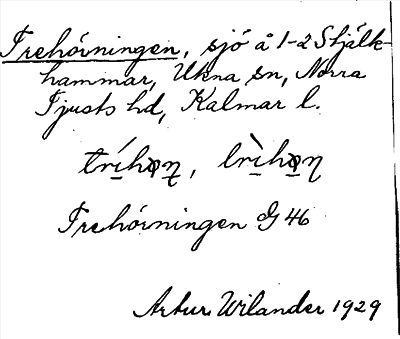 Trehörningen, sjö å 1-2 Stjälk-
hammar, Ukna sn, Norra
Tjusts hd, Kalmar l.
Trehörningen G 46
Artur Wilander 1929